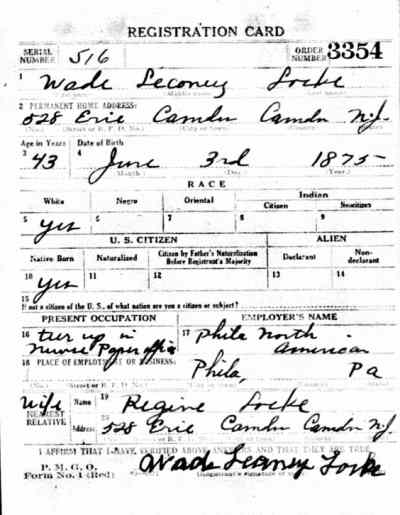 REGISTRATION CARD
SERIAL NUMBER 516 ORDER NUMBER 3354
1 Wade Leconey Locke
2 PERMANENT HOME ADDRESS:
528 Erie Camden Camden N.J.
(No.) (Street or R. F. D. No.) (City or town) (County) (State)
Age in Years Date of Birth
3 43 4 June 3rd 1875
(Month.) (Day.) (Year.)
RACE
White Negro Oriental Indian
Citizen Noncitizen
5 yes 6 7 8 9
U. S. CITIZEN ALIEN
Native Born Naturalized Citizen by Father's Naturalization Before Registrant's Majority Declarant Non-declarant
10 yes 11 12 13 14
15
If not a citizen of the U. S., of what nation are you a citizen or subject?
PRESENT OCCUPATION EMPLOYER'S NAME
16 tier up in 17 Phila North
Newse Paper office American
18 PLACE OF EMPLOYMENT OR BUSINESS:
Phila, Pa
(No.) (Street or R. F. D. No.)
Wife
NEAREST RELATIVE Name 19 Regine Locke
Address 20 528 Erie Camden Camden N.J.
I AFFIRM THAT I HAVE VERIFIED ABOVE ANSWERS AND THAT THEY ARE TRUE.
P. M. G. O.
Form No. 1 (Red) Wade Leconey Locke
(Registrant's signature